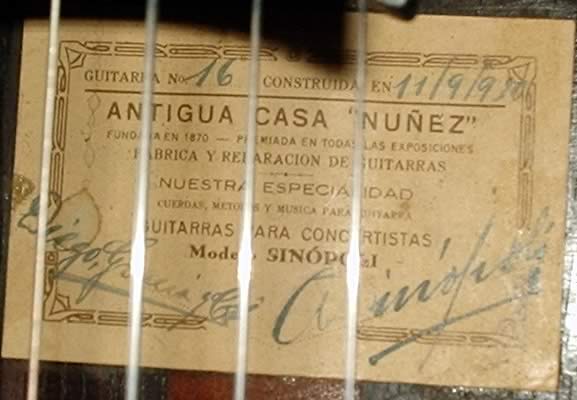 GUITARRA No. 16 CONSTRUIDA EN 11/9/930
ANTIGUA CASA "NUÑEZ"
FUNDADA EN 1870 — PREMIADA EN TODAS LAS EXPOSICIONES
FABRICA Y REPARACION DE GUITARRAS
NUESTRA ESPECIALIDAD
CUERDAS, METODOS Y MUSICA PARA GUITARRA
GUITARRAS PARA CONCERTISTAS
Modelo SINÓPOLI
Diego, Gracia y Cía